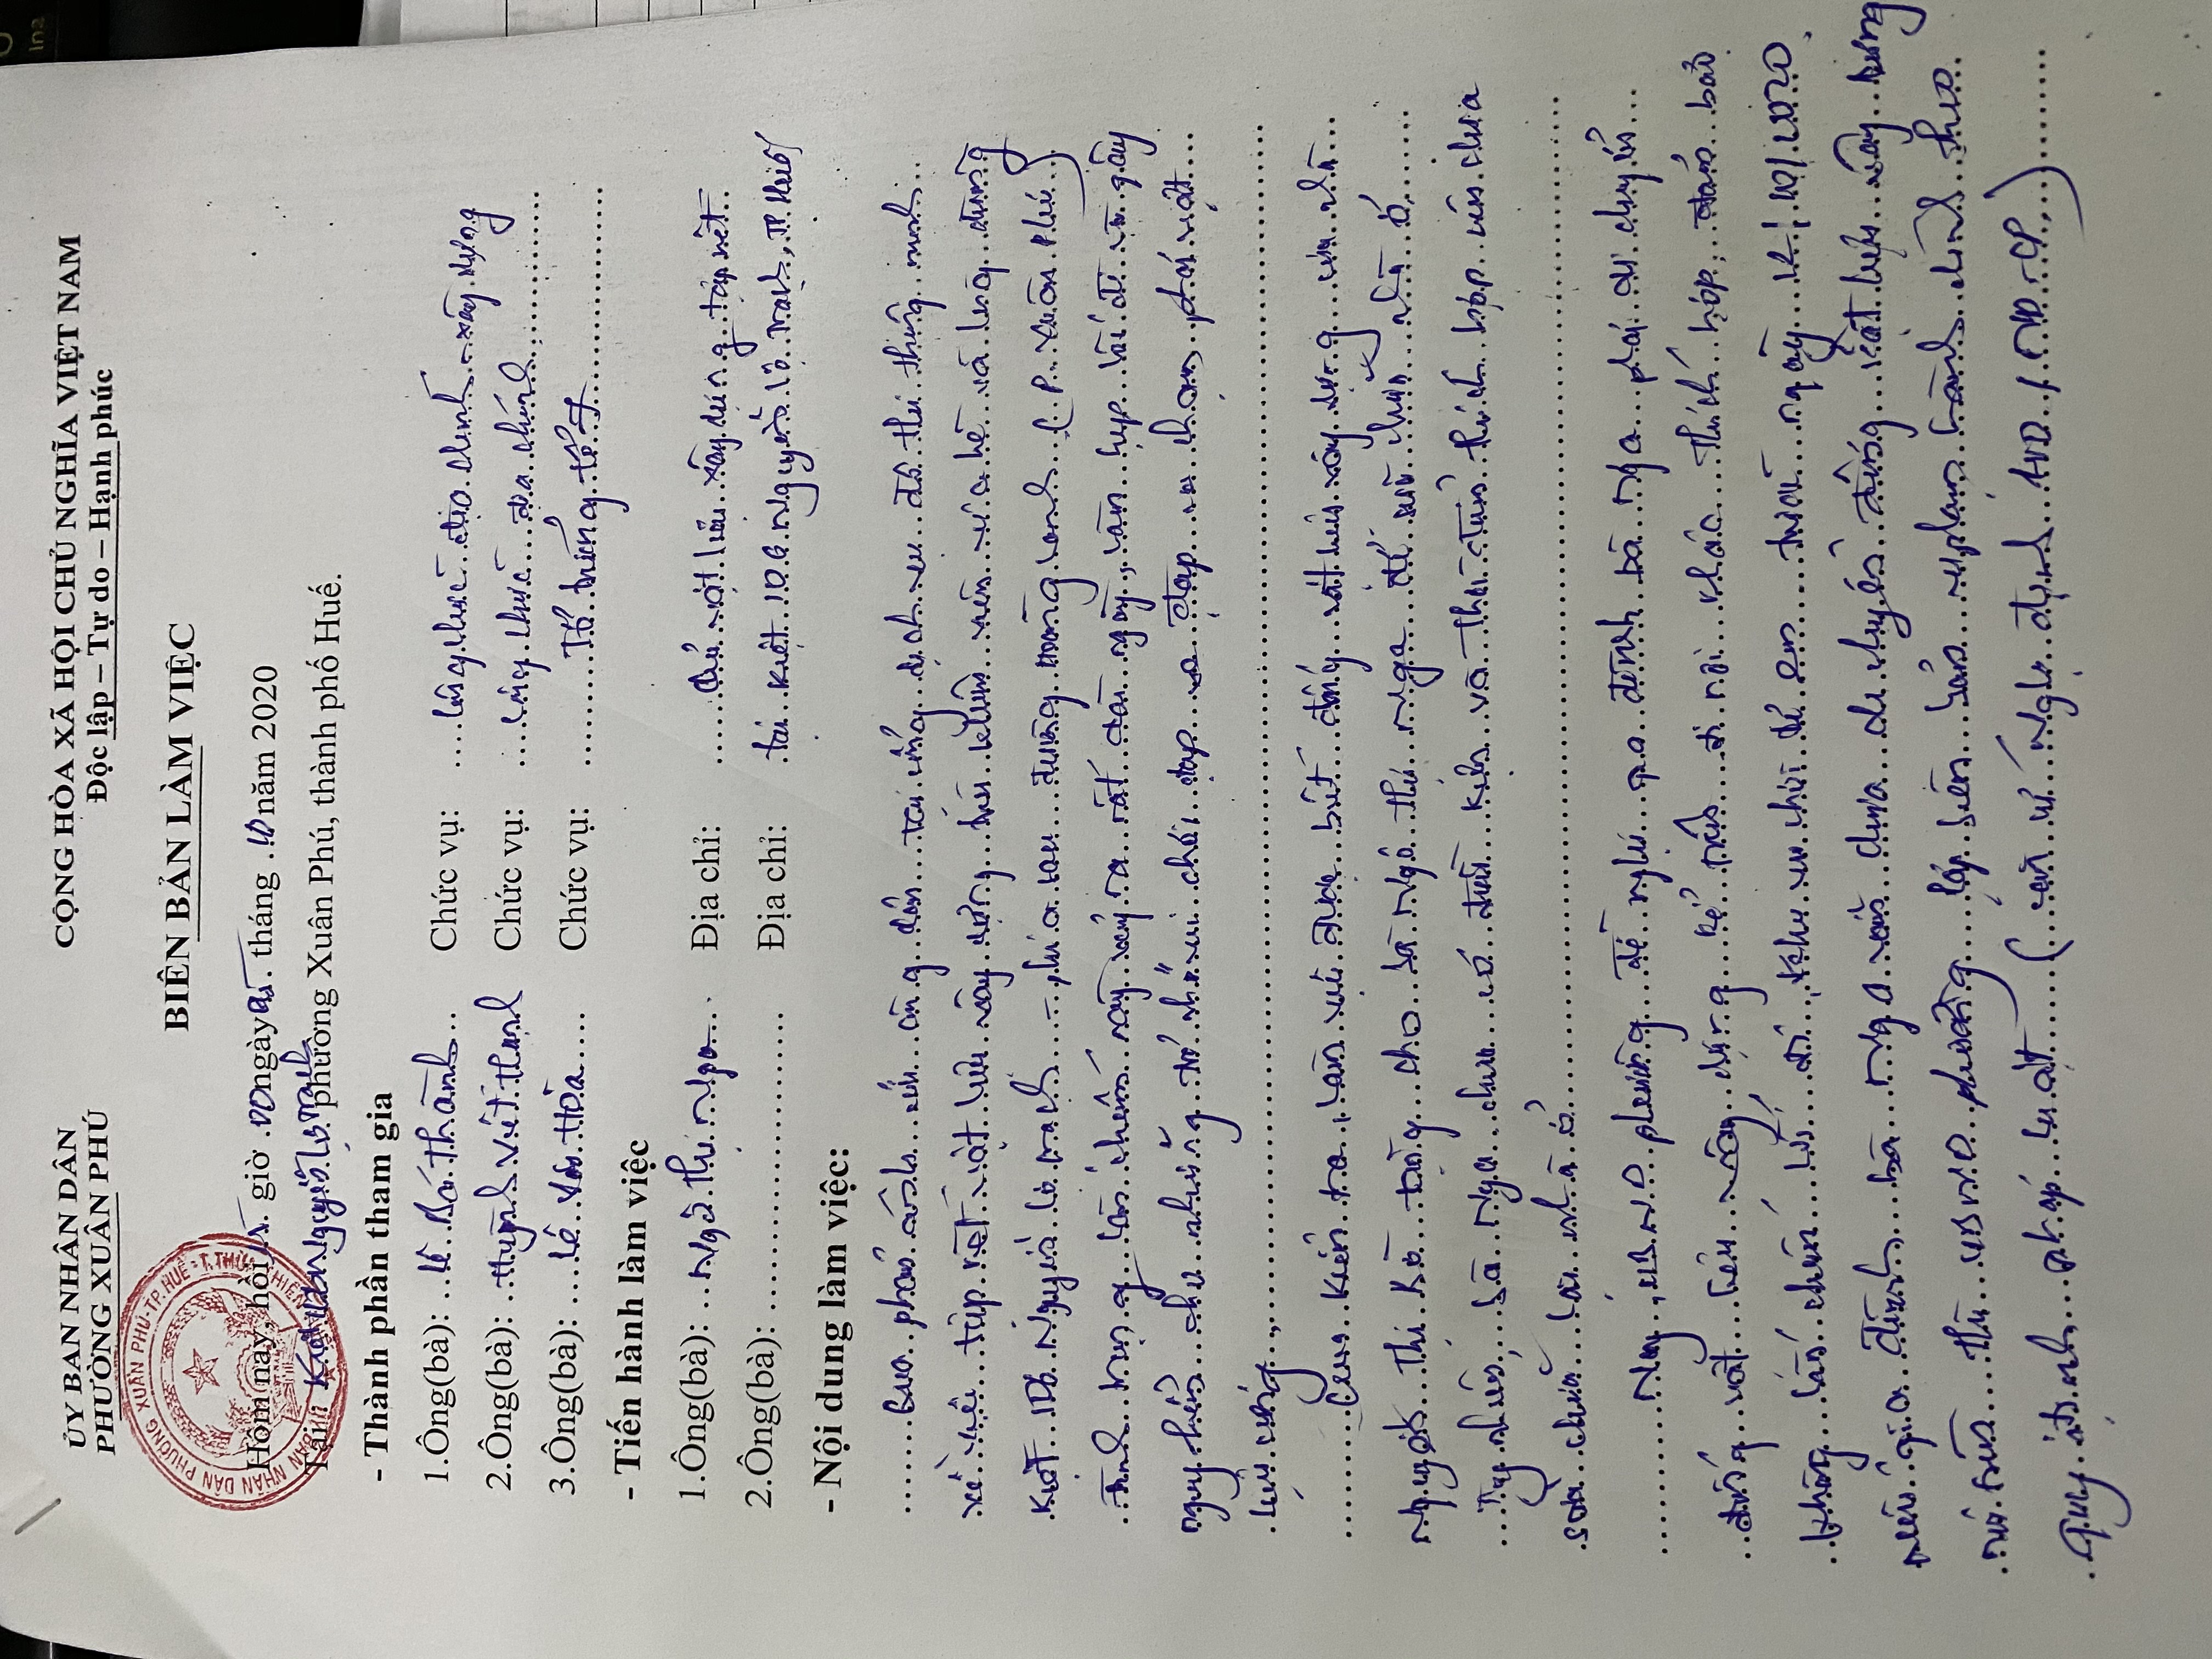 ỦY BAN NHÂN DÂN
PHƯỜNG XUÂN PHÚ
CỘNG HÒA XÃ HỘI CHỦ NGHĨA VIỆT NAM
Độc lập – Tự do – Hạnh phúc
BIÊN BẢN LÀM VIỆC
Hôm nay, hồi giờ 00 ngày tháng 10 năm 2020
Tại: Kiệt Nguyễn Lộ Trạch phường Xuân Phú, thành phố Huế.
- Thành phần tham gia
1.Ông(bà): Lê Bá Thành Chức vụ: Công chức địa chính xây dựng
2.Ông(bà): Huỳnh Viết Thanh Chức vụ: Công chức địa chính
3.Ông(bà): Lê Văn Hòa Chức vụ: Tổ trưởng tổ 7
- Tiến hành làm việc
1.Ông(bà): Ngô Thị Nga Địa chỉ: Chủ vật liệu xây dựng tập kết
2.Ông(bà): Địa chỉ: tại kiệt 106 Nguyễn Lộ Trạch, TP Huế
- Nội dung làm việc:
Qua phản ánh của công dân tại ứng dịch vụ đô thị thông minh
về việc tập kết vật liệu xây dựng trên vỉa hè và lòng đường
Kiệt 106 Nguyễn Lộ Trạch phía sau đường (P. Xuân Phú)
Tình trạng lấn chiếm này xảy ra rất dài ngày, làm hẹp lối đi và gây
nguy hiểm cho những trẻ nhỏ vui chơi, đạp xe đạp va chạm phải vật
liệu cứng.
Qua kiểm tra, làm việc được biết đống vật liệu xây dựng của nhà
cho bà Ngô Thị Nga để sửa chữa nhà ở.
Tuy nhiên, bà Nga chưa có điều kiện và thời điểm thích hợp nên chưa
sửa chữa lại nhà ở.
Nay, UBND phường đề nghị gia đình bà Nga phải di chuyển
đống vật liệu xây dựng kể trên đi nơi khác thích hợp, đảm bảo
không lấn chiếm lối đi, khu vui chơi trẻ em trước ngày 12/10/2020
nếu gia đình bà Nga vẫn chưa di chuyển đống vật liệu xây dựng
nói trên thì UBND phường lập biên bản vi phạm hành chính theo
quy định pháp luật (căn cứ Nghị định /NĐ-CP)